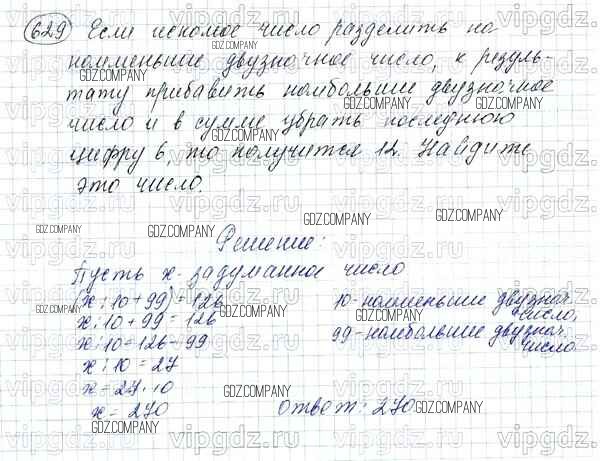 629 Если искомое число разделить на
наименьшее двузначное число, к резуль-
тату прибавить наибольшее двузначное
число и в сумме убрать последнюю
цифру 6, то получится 12. Найдите
это число.
Решение:
Пусть x - задуманное число
(x : 10 + 99) = 126
10 - наименьшее двузнач.
число,
x : 10 + 99 = 126
99 - наибольшее двузнач.
число
x : 10 = 126 - 99
x : 10 = 27
x = 27 · 10
x = 270
Ответ: 270
GDZ.COMPANY
vipgdz.ru